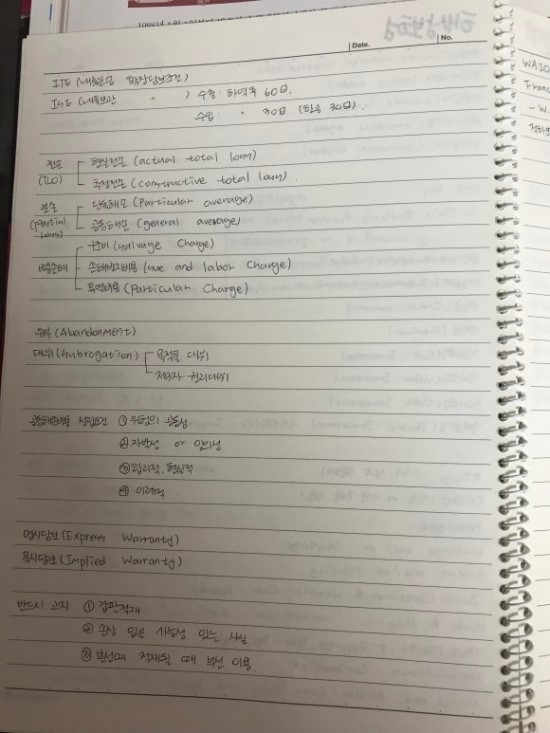 해상보험
Date.
No.
ITE (내륙운송 확장담보조건)
ISE (내륙보관 〃 ) 수출: 하역후 60日.
수입 〃 30日 (항공 30日).
전손 현실전손 (actual total loss)
(TLO) 추정전손 (constructive total loss).
분손 단독해손 (Particular average)
(partial loss) 공동해손 (general average)
구조비 (salvage Charge)
비용손해 손해방지비용 (sue and labor Charge)
특별비용 (Particular Charge)
위부 (Abandonment)
대위 (Subrogation) 목적물 대위
제3자 권리대위
공동해손 성립요건 ① 위험의 공동성
② 자발성 or 임의성
③ 합리적, 현실적
④ 이례적
명시담보 (Express Warranty)
묵시담보 (Implied Warranty)
반드시 고지 ① 갑판적재
② 손상 입을 가능성 있는 사실
③ 본선에 적재될 때 부선 이용